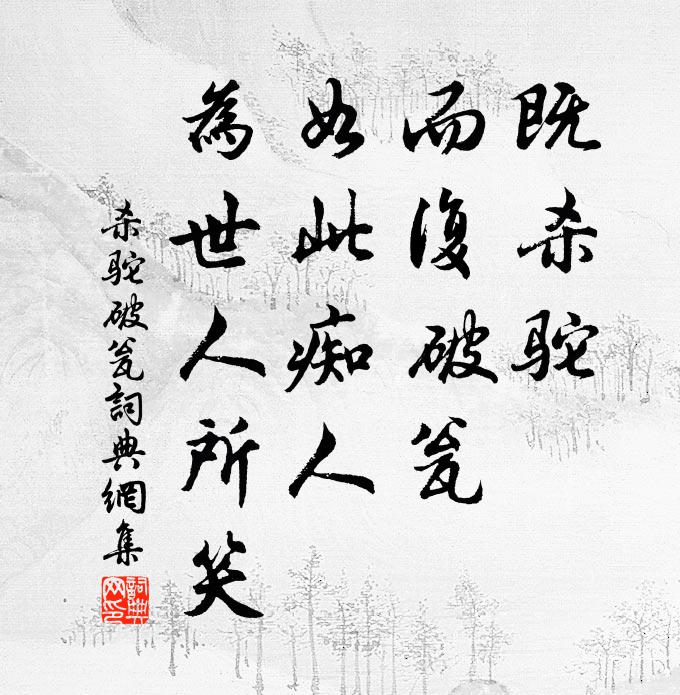 既杀驼
而復破瓮
如此痴人
為世人所笑
杀驼破瓮詞典網集
詞典
网印